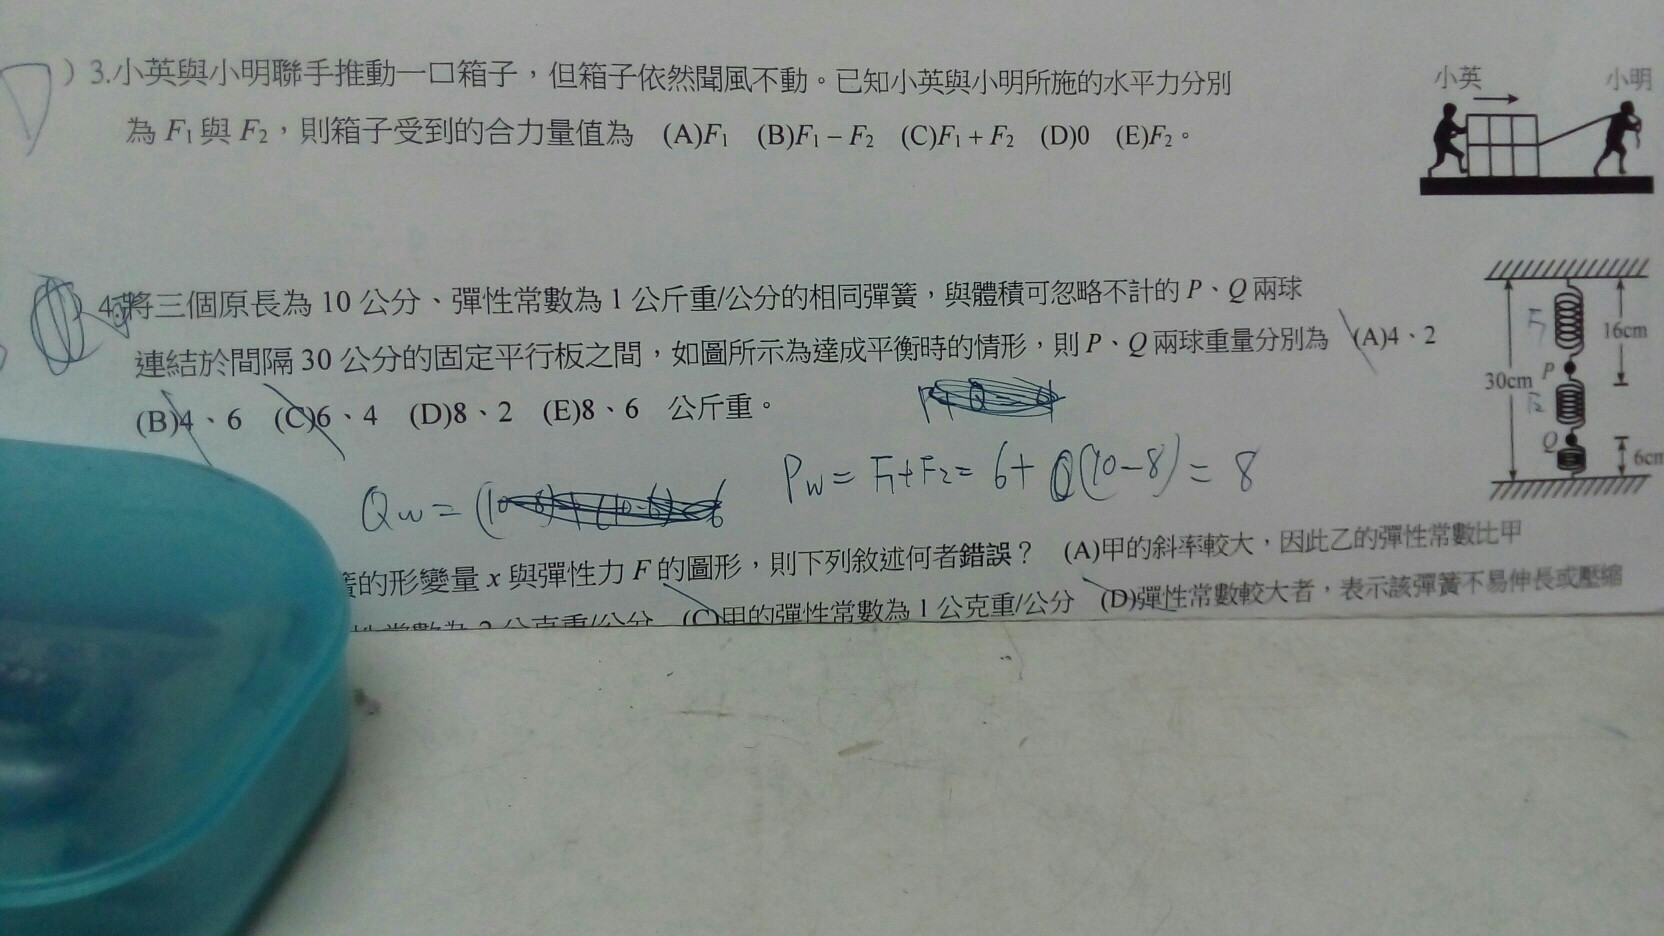 )3.小英與小明聯手推動一口箱子，但箱子依然聞風不動。已知小英與小明所施的水平力分別
為 F₁ 與 F₂，則箱子受到的合力量值為 (A)F₁ (B)F₁－F₂ (C)F₁＋F₂ (D)0 (E)F₂。
小英 小明
)4.將三個原長為 10 公分、彈性常數為 1 公斤重/公分的相同彈簧，與體積可忽略不計的 P、Q 兩球
連結於間隔 30 公分的固定平行板之間，如圖所示為達成平衡時的情形，則 P、Q 兩球重量分別為 (A)4、2
(B)4、6 (C)6、4 (D)8、2 (E)8、6 公斤重。
F₁
16cm
30cm
P
F₂
Q
6cm
Pw = F₁+F₂ = 6+(10-8) = 8
Qw =
簧的形變量 x 與彈性力 F 的圖形，則下列敘述何者錯誤？ (A)甲的斜率較大，因此乙的彈性常數比甲
性常數為 2 公克重/公分 (C)甲的彈性常數為 1 公克重/公分 (D)彈性常數較大者，表示該彈簧不易伸長或壓縮